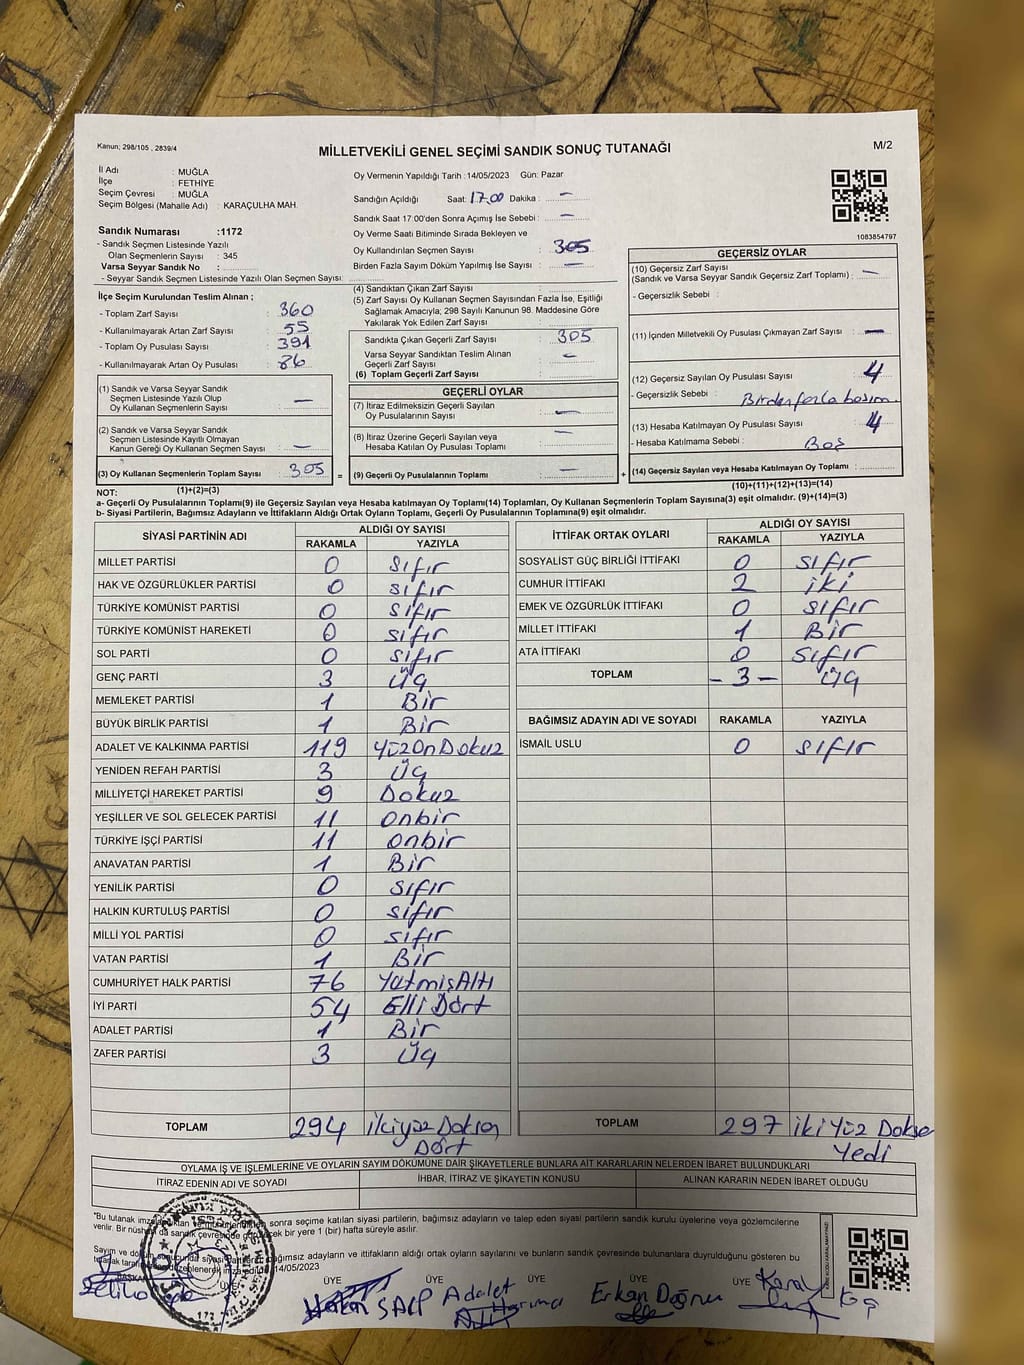 Kanun; 298/105 , 2839/4
MİLLETVEKİLİ GENEL SEÇİMİ SANDIK SONUÇ TUTANAĞI
M/2
İl Adı : MUĞLA
İlçe : FETHİYE
Seçim Çevresi : MUĞLA
Seçim Bölgesi (Mahalle Adı) : KARAÇULHA MAH.
Sandık Numarası :1172
- Sandık Seçmen Listesinde Yazılı
Olan Seçmenlerin Sayısı : 345
Varsa Seyyar Sandık No :
- Seyyar Sandık Seçmen Listesinde Yazılı Olan Seçmen Sayısı:
İlçe Seçim Kurulundan Teslim Alınan ;
- Toplam Zarf Sayısı : 360
- Kullanılmayarak Artan Zarf Sayısı : 55
- Toplam Oy Pusulası Sayısı : 391
- Kullanılmayarak Artan Oy Pusulası : 86
(1) Sandık ve Varsa Seyyar Sandık
Seçmen Listesinde Yazılı Olup
Oy Kullanan Seçmenlerin Sayısı : —
(2) Sandık ve Varsa Seyyar Sandık
Seçmen Listesinde Kayıtlı Olmayan
Kanun Gereği Oy Kullanan Seçmen Sayısı : —
(3) Oy Kullanan Seçmenlerin Toplam Sayısı : 305
(1)+(2)=(3)
Oy Vermenin Yapıldığı Tarih : 14/05/2023 Gün: Pazar
Sandığın Açıldığı Saat: 17.00 Dakika : —
Sandık Saat 17:00'den Sonra Açımış İse Sebebi : —
Oy Verme Saati Bitiminde Sırada Bekleyen ve
Oy Kullandırılan Seçmen Sayısı : 305
Birden Fazla Sayım Döküm Yapılmış İse Sayısı : —
(4) Sandıktan Çıkan Zarf Sayısı :
(5) Zarf Sayısı Oy Kullanan Seçmen Sayısından Fazla İse, Eşitliği
Sağlamak Amacıyla; 298 Sayılı Kanunun 98. Maddesine Göre
Yakılarak Yok Edilen Zarf Sayısı :
Sandıkta Çıkan Geçerli Zarf Sayısı : 305
Varsa Seyyar Sandıktan Teslim Alınan
Geçerli Zarf Sayısı : —
(6) Toplam Geçerli Zarf Sayısı :
GEÇERLİ OYLAR
(7) İtiraz Edilmeksizin Geçerli Sayılan
Oy Pusulalarının Sayısı : —
(8) İtiraz Üzerine Geçerli Sayılan veya
Hesaba Katılan Oy Pusulası Toplamı : —
= (9) Geçerli Oy Pusulalarının Toplamı : —
1083854797
GEÇERSİZ OYLAR
(10) Geçersiz Zarf Sayısı
(Sandık ve Varsa Seyyar Sandık Geçersiz Zarf Toplamı) : —
- Geçersizlik Sebebi :
(11) İçinden Milletvekili Oy Pusulası Çıkmayan Zarf Sayısı : —
(12) Geçersiz Sayılan Oy Pusulası Sayısı : 4
- Geçersizlik Sebebi : Birden fazla basım.
(13) Hesaba Katılmayan Oy Pusulası Sayısı : 4
- Hesaba Katılmama Sebebi : Boş
+ (14) Geçersiz Sayılan veya Hesaba Katılmayan Oy Toplamı :
(10)+(11)+(12)+(13)=(14)
NOT:
a- Geçerli Oy Pusulalarının Toplamı(9) ile Geçersiz Sayılan veya Hesaba katılmayan Oy Toplamı(14) Toplamları, Oy Kullanan Seçmenlerin Toplam Sayısına(3) eşit olmalıdır. (9)+(14)=(3)
b- Siyasi Partilerin, Bağımsız Adayların ve İttifakların Aldığı Ortak Oyların Toplamı, Geçerli Oy Pusulalarının Toplamına(9) eşit olmalıdır.
SİYASİ PARTİNİN ADI ALDIĞI OY SAYISI
RAKAMLA YAZIYLA
MİLLET PARTİSİ 0 sıfır
HAK VE ÖZGÜRLÜKLER PARTİSİ 0 sıfır
TÜRKİYE KOMÜNİST PARTİSİ 0 sıfır
TÜRKİYE KOMÜNİST HAREKETİ 0 sıfır
SOL PARTİ 0 sıfır
GENÇ PARTİ 3 Üç
MEMLEKET PARTİSİ 1 Bir
BÜYÜK BİRLİK PARTİSİ 1 Bir
ADALET VE KALKINMA PARTİSİ 119 YüzOnDokuz
YENİDEN REFAH PARTİSİ 3 Üç
MİLLİYETÇİ HAREKET PARTİSİ 9 Dokuz
YEŞİLLER VE SOL GELECEK PARTİSİ 11 onbir
TÜRKİYE İŞÇİ PARTİSİ 11 onbir
ANAVATAN PARTİSİ 1 Bir
YENİLİK PARTİSİ 0 sıfır
HALKIN KURTULUŞ PARTİSİ 0 sıfır
MİLLİ YOL PARTİSİ 0 sıfır
VATAN PARTİSİ 1 Bir
CUMHURİYET HALK PARTİSİ 76 YetmişAltı
İYİ PARTİ 54 Elli Dört
ADALET PARTİSİ 1 Bir
ZAFER PARTİSİ 3 Üç
TOPLAM 294 ikiyüz Doksan
Dört
İTTİFAK ORTAK OYLARI ALDIĞI OY SAYISI
RAKAMLA YAZIYLA
SOSYALİST GÜÇ BİRLİĞİ İTTİFAKI 0 sıfır
CUMHUR İTTİFAKI 2 iki
EMEK VE ÖZGÜRLÜK İTTİFAKI 0 sıfır
MİLLET İTTİFAKI 1 Bir
ATA İTTİFAKI 0 sıfır
TOPLAM -3- Üç
BAĞIMSIZ ADAYIN ADI VE SOYADI RAKAMLA YAZIYLA
İSMAİL USLU 0 sıfır
TOPLAM 297 iki Yüz Dokse
Yedi
OYLAMA İŞ VE İŞLEMLERİNE VE OYLARIN SAYIM DÖKÜMÜNE DAİR ŞİKAYETLERLE BUNLARA AİT KARARLARIN NELERDEN İBARET BULUNDUKLARI
İTİRAZ EDENİN ADI VE SOYADI İHBAR, İTİRAZ VE ŞİKAYETİN KONUSU ALINAN KARARIN NEDEN İBARET OLDUĞU
"Bu tutanak sonra seçime katılan siyasi partilerin, bağımsız adayların ve talep eden siyasi partilerin sandık kurulu üyelerine veya gözlemcilerine
verilir. Bir nüshası da sandık çevresinde bir yere 1 (bir) hafta süreyle asılır.
Sayım ve bağımsız adayların ve ittifakların aldığı ortak oyların sayılarını ve bunların sandık çevresinde bulunanlara duyrulduğunu gösteren bu
tutanak 14/05/2023
BAŞKAN ÜYE ÜYE ÜYE ÜYE ÜYE ÜYE
Hakan SALP Adalet Erkan Doğru